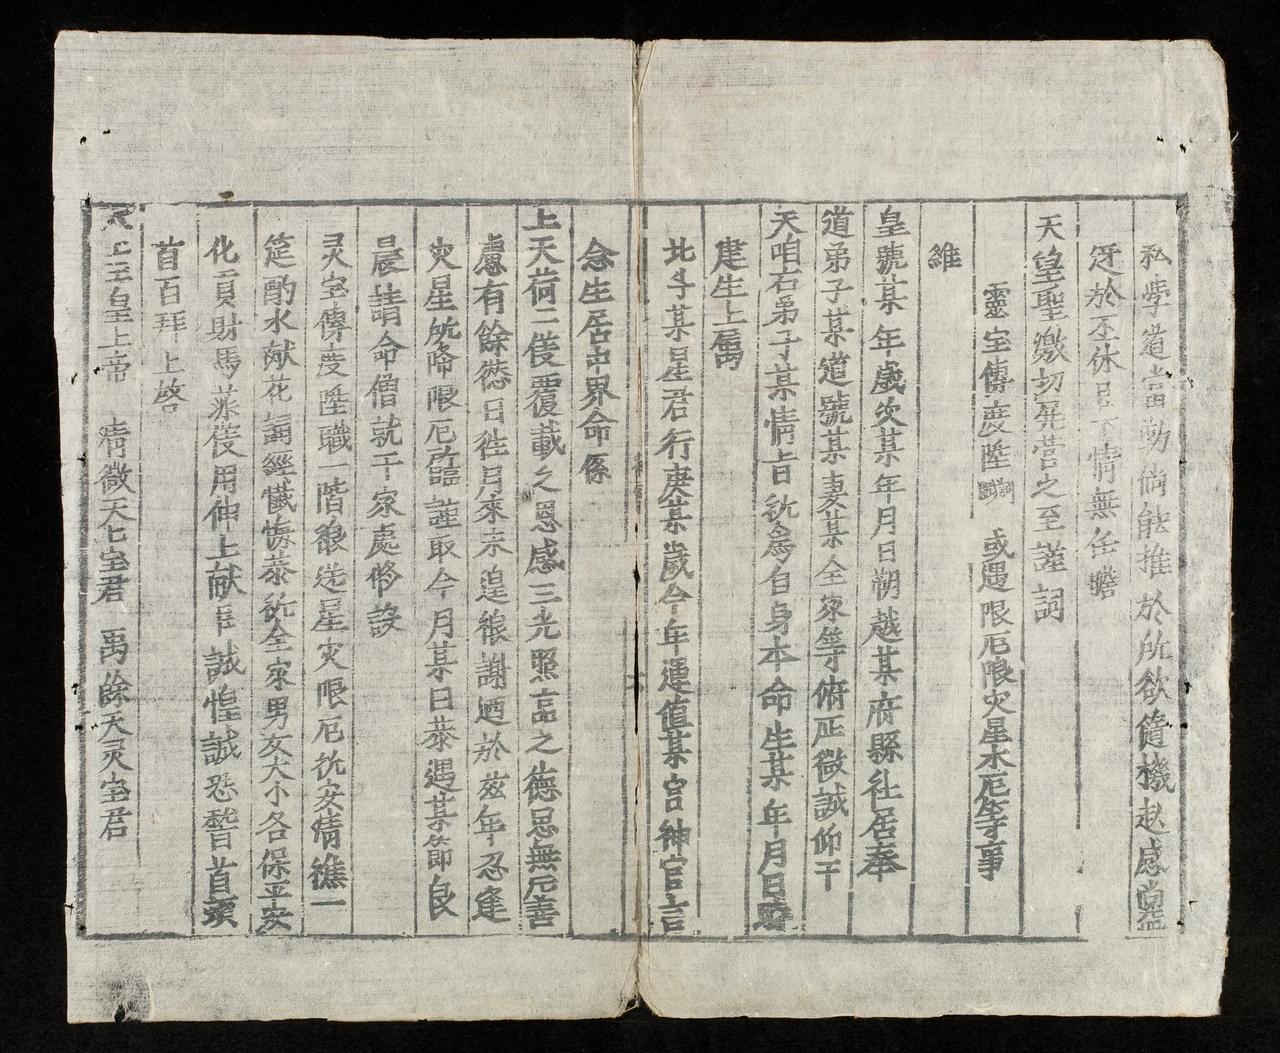 私學道當勤倘能推於所欲隨機赴感
迓於丕休臣下情無任瞻
天皇聖激切屏营之至謹詞
靈宝傳度陞職 或遇限厄限灾星木厄等事
維
皇號某年歲次某年月日朔越某府縣社居奉
道弟子某道號某妻某全家等俯瀝微誠仰干
天咱右弟子某情旨 伏爲自身本命生某年月日
建生上屬
北斗某星君行庚某歲今年運值某宮神官言
念生居中界命係
上天荷二儀覆載之恩感三光照臨之德忌無尺善
慮有餘愆日徃月來未遑禳謝迺於玆年忍逢
灾星所降限厄所臨謹取今月某日恭遇某節良
晨請命僧就于家處修設
灵宝傳度陞職一階禳送星灾限厄祈安情醮一
筵酌水献花誦經懺悔恭祈全家男女大小各保平安
化貢財馬菲儀用伸上献臣誠惶誠恐稽首頓
首百拜上啓
玉皇上帝 清微天七宝君 禹餘天灵宝君